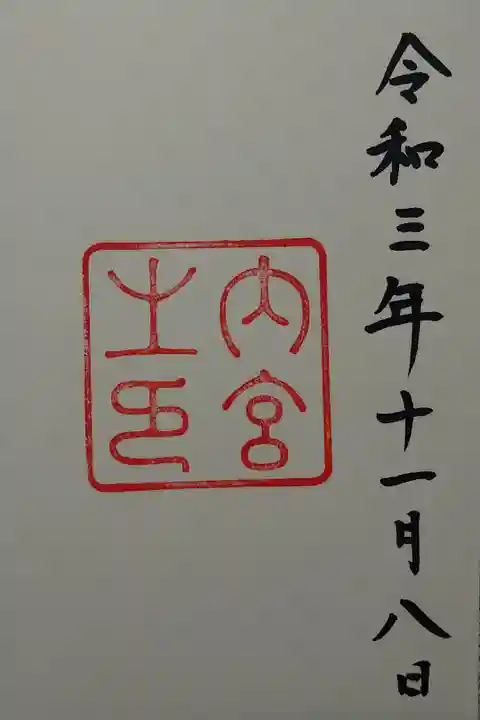 令和三年十一月八日
内宮
之印